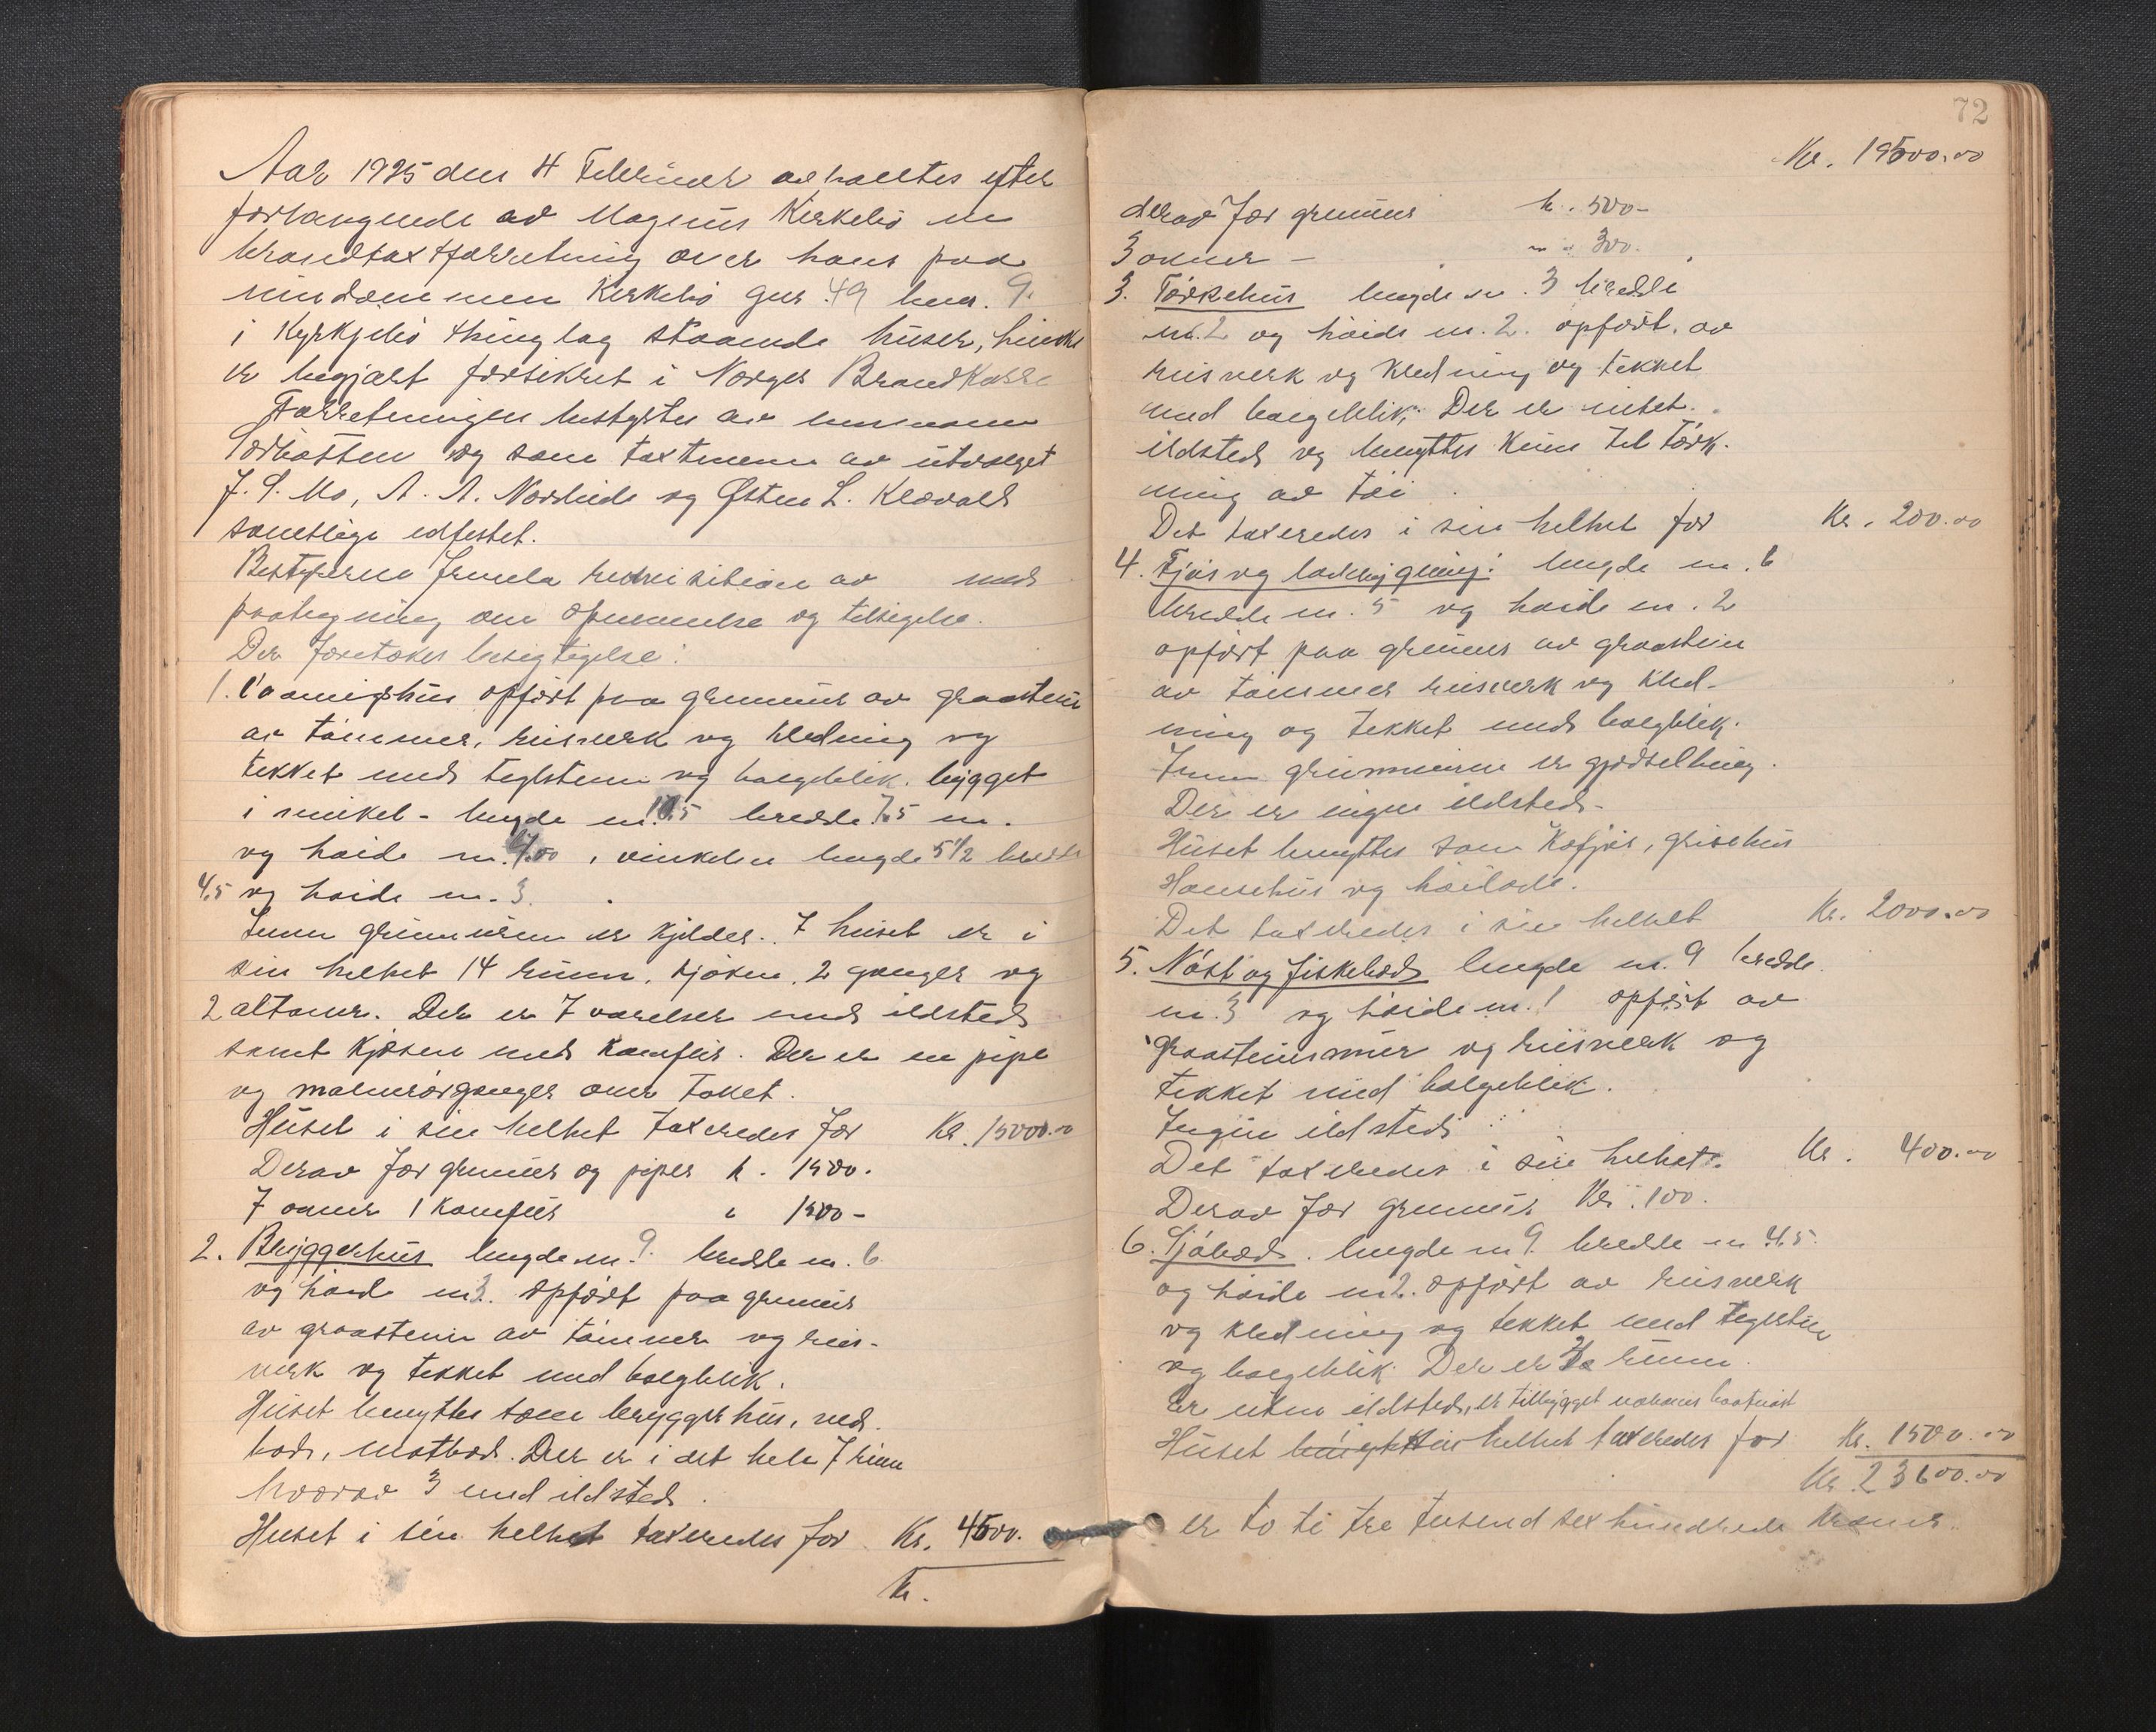 Aar 1925 den 4 Februar avholdtes efter
forlangende av Magnus Kirkebø en
brandtaxtforretning over hans paa
eiendommen Kirkebø gnr. 49 bnr. 9.
i Kyrkjebø thinglag staaende huser, hvilke
er begjært forsikret i Norges Brandkasse
Forretningen bestyrtes av lensmann
Sørbotten og som taxtmenn av utvalget
J. S. Mo, A. A. Nordeide og Østen L. Klævold
samtlige edfestet.
Bestyreren fremla rekvisition av med
paategning om opnevnelse og tilsigelse.
Der foretokes besigtigelse:
1. Vaaningshus opført paa grunmur av graasten
av tømmer, reisverk og kledning og
tekket med teglstein og bølgeblik. bygget
i vinkel - lengde m. 10.5 bredde 7.5 m.
og høide m. 4.00, vinkelen lengde 5½ bredde
4.5 og høide m. 3.
Innen grunmuren er kjelder. I huset er i
sin helhet 14 rumm, kjøken, 2 ganger og
2 altaner. Der er 7 værelser med ildsted
samt kjøken med komfur. Der er en pipe
og malmrørganger over taket.
Huset i sin helhet taxeredes for Kr. 15000.00
Derav for grunmur og piper k. 1500.
7 ovner 1 komfur " 1500 -
2. Bryggerhus lengde m. 9. bredde m. 6
og høide m 3. opført paa grunmur
av graastein av tømmer og reis-
verk og tekket med bølgeblik.
Huset benyttes som bryggerhus, ved
bod, matbod. Der er i det hele 7 rum
hvorav 3 med ildsted.
Huset i sin helhet taxeredes for Kr. 4500.
Kr.
72
Kr. 19500.00
derav for grunmur k. 500 -
3 ovner - " " 300.
3. Tørkehus lengde m. 3 bredde
m. 2 og høide m. 2. opført av
reisverk og kledning og tekket
med bølgeblik. Der er intet
ildsted og benyttes kun til tørk-
ning av tøi.
Det taxeredes i sin helhet for Kr. 200.00
4. Fjøs og ladebygning: lengde m. 6
bredde m. 5 og høide m. 2
opført paa grunmur av graastein
av tømmer reisverk og kled-
ning og tekket med bølgblik.
Innen grunmuren er gjødselbing.
Der er ingen ildsted.
Huset benyttes som kofjøs, grisehus
Hønsehus og høilade.
Det taxeredes i sin helhet Kr. 2000.00
5. Nøst og fiskebod lengde m. 9 bredde
m. 3 og høide m. ! opført av
graasteinsmur og reisverk og
tekket med bølgeblik.
Ingen ildsted
Det taxeredes i sin helhet. Kr. 400.00
Derav for grunmur Kr. 100.
6. Sjøbod. lengde m 9. bredde m 4.5.
og høide m 2. opført av reisverk
og kledning og tekket med teglstein
og bølgeblik. Der er 2 rumm.
Er uten ildsted, er tilbygget baatnøst
Huset i sin helhet taxeredes for Kr. 1500.00
Kr. 23600.00
er to ti tre tusend sex hundrede kroner.